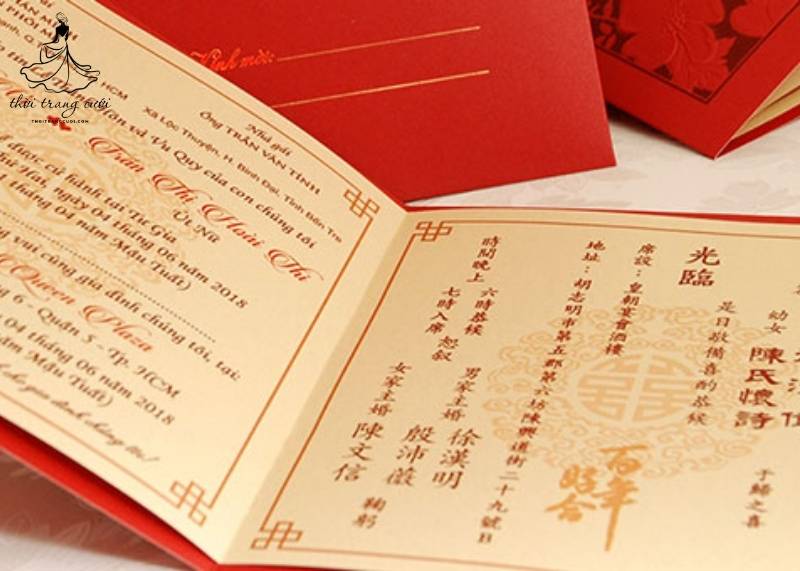 thời trang cưới
THOITRANGCUOI.COM
Kính mời:
HCM
Nhà gái
Ông TRẦN VĂN TÍNH
Xã Lộc Thuận, H. Bình Đại, Tỉnh Bến Tre
Hôn và Vu Quy của con chúng tôi
Trần Thị Hoài Thi
Út Nữ
được cử hành tại Tư Gia
ngày 04 tháng 06 năm 2018
tháng 04 năm Mậu Tuất)
vui cùng gia đình chúng tôi, tại:
Queen Plaza
6 - Quận 5 - Tp. HCM
04 tháng 06 năm 2018
năm Mậu Tuất)
cho gia đình chúng tôi!
幼女
陳氏懷詩
于歸之喜
是日敬備喜酌恭候
光臨
席設：皇朝宴會酒樓
地址：胡志明市第五郡第六坊陳興道街二十九號B
時間晚上 六時恭候
七時入席 恕叙
男家主婚 徐漢明
殷沛薇
女家主婚 陳文信
鞠躬
百年好合